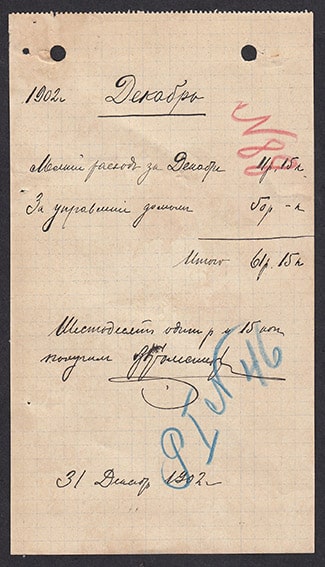 1902 г Декабрь
N 88
Мелкий расходъ за Декабрь 11р. 15к
За управленiй домомъ 50р - к
Итого 61р. 15к
Шестьдесятъ одинъ р и 15 коп
получилъ
РI N 46
31 Декабр 1902 г